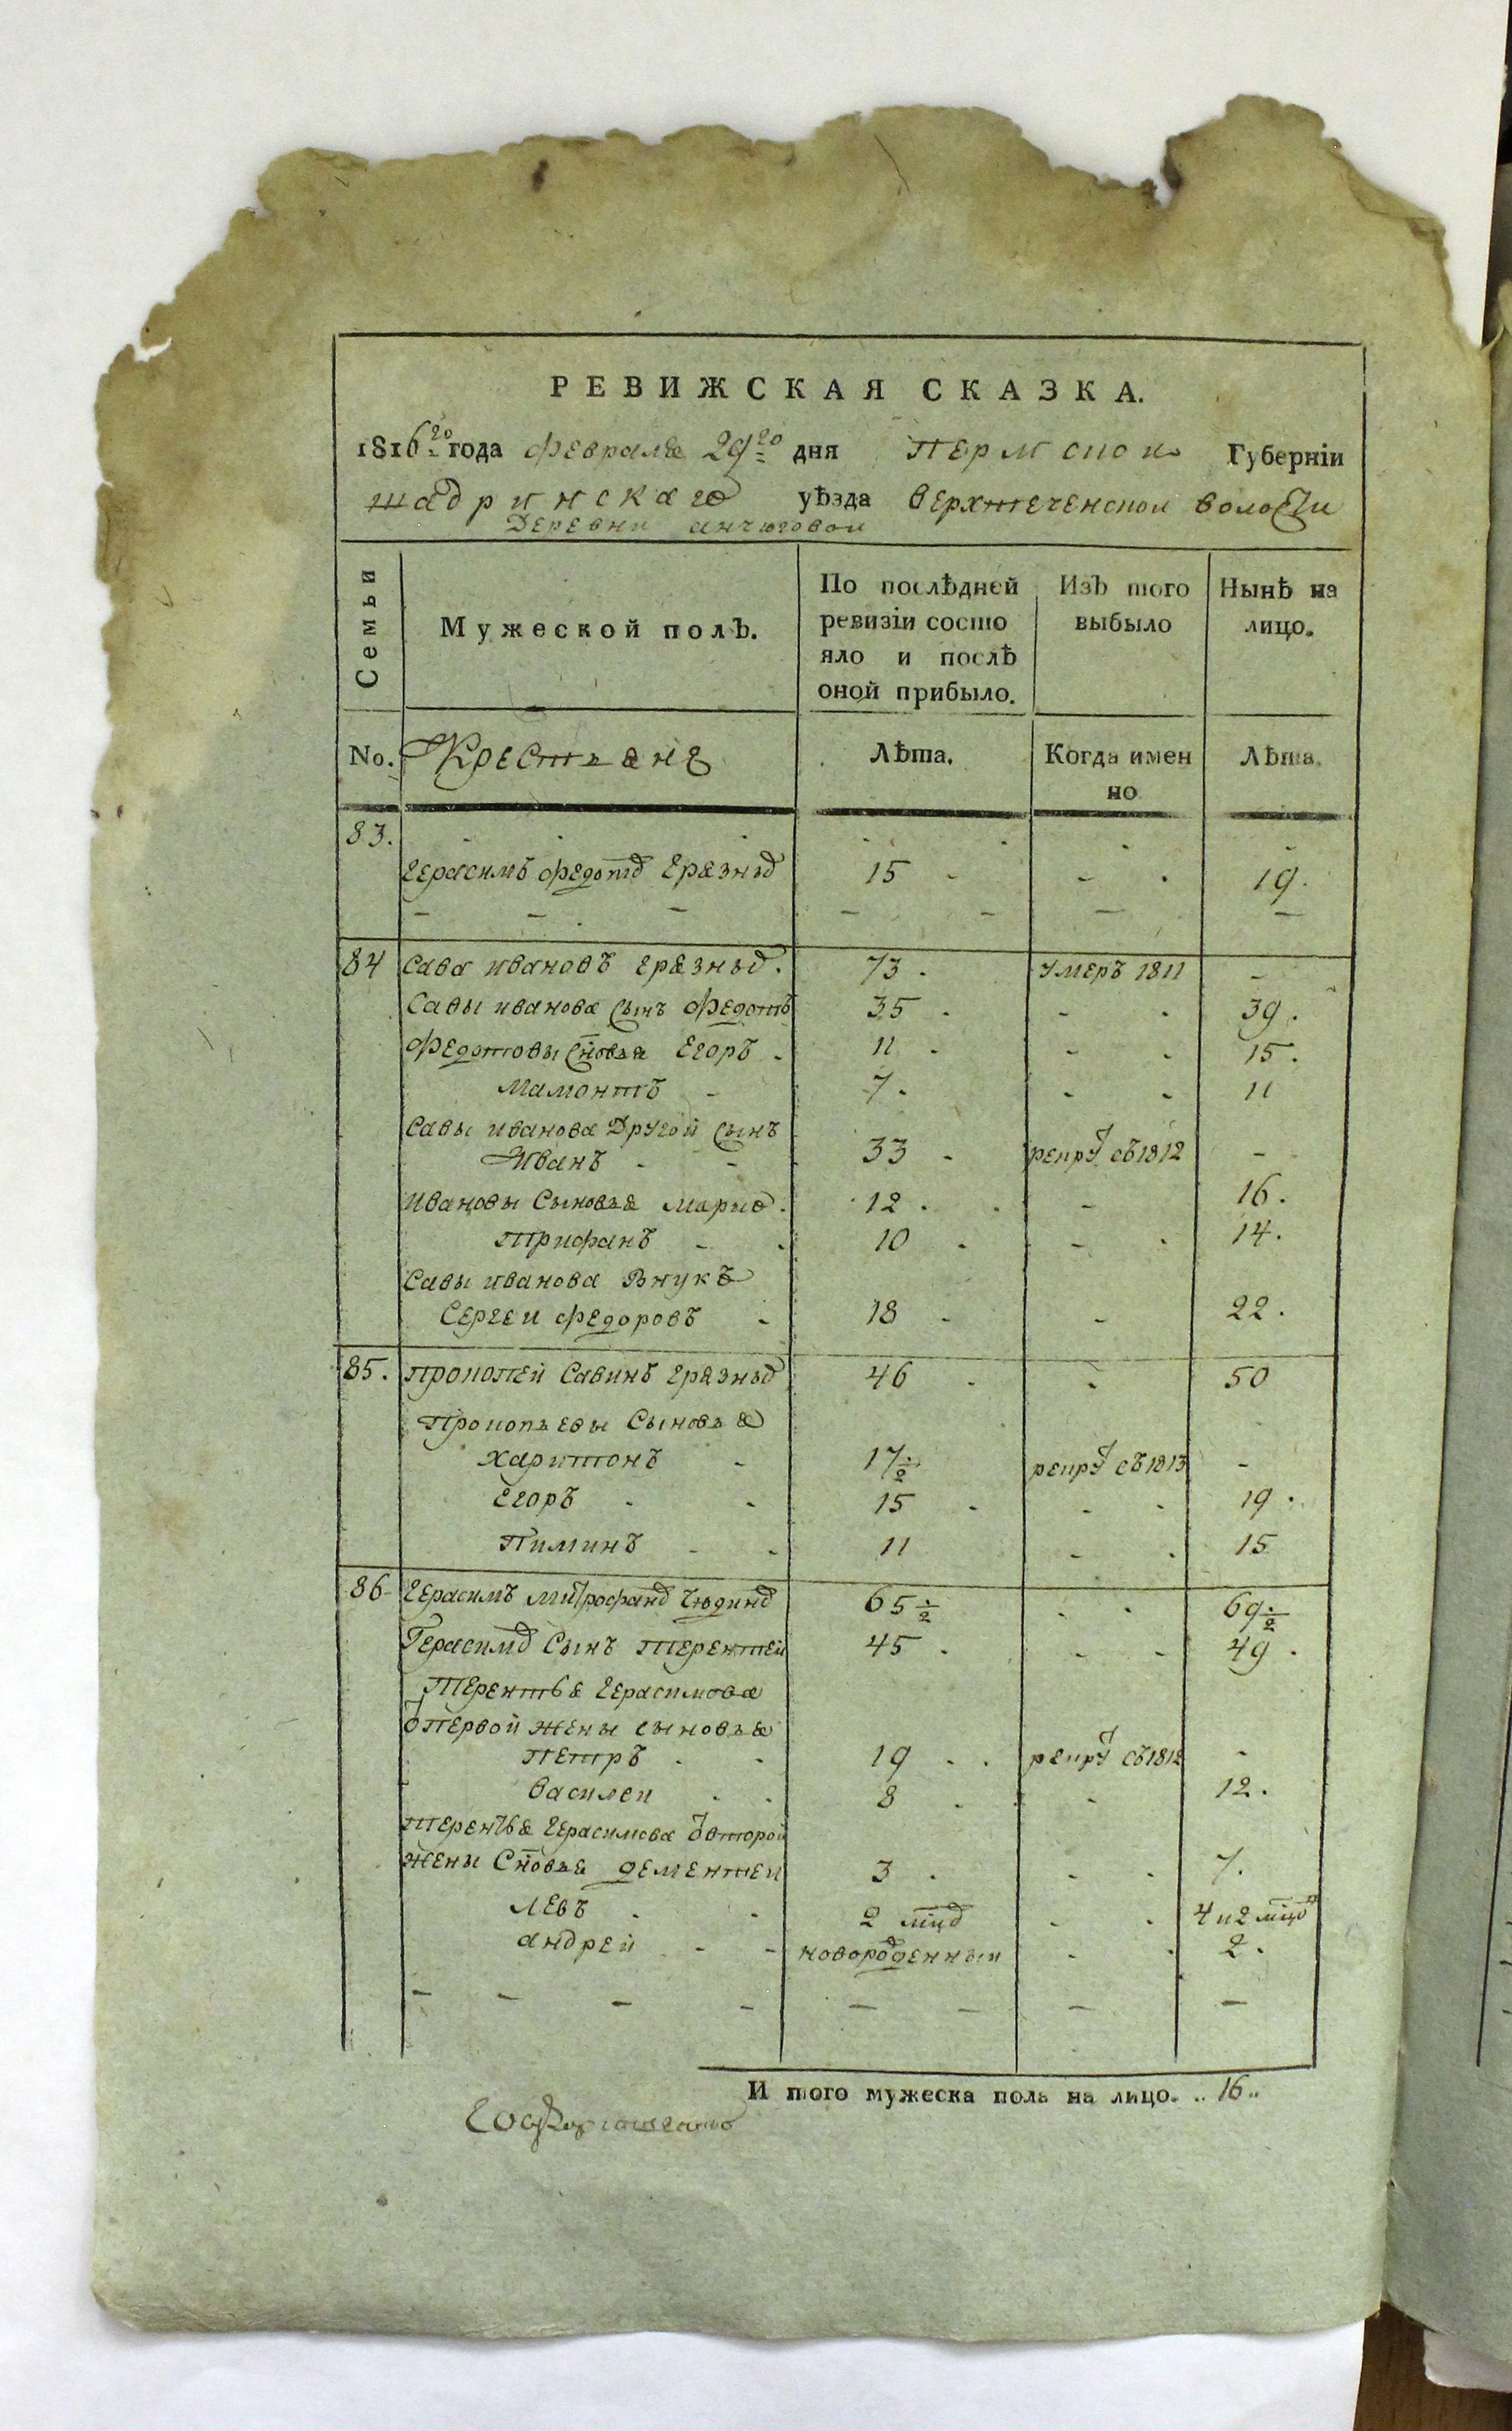 РЕВИЖСКАЯ СКАЗКА.
1816го года февраля 29го дня Пермской Губерніи
шадринскаго уѣзда верхтеченской волости
деревни анчюговой
Семьи Мужеской полъ. По послѣдней ревизіи состояло и послѣ оной прибыло. Изъ того выбыло Нынѣ на лицо.
No. Крестьяне Лѣта. Когда именно Лѣта.
83.
Герасимъ федотовъ грязныхъ 15 - - 19.
84 Сава ивановъ грязныхъ. 73. умеръ 1811 -
Савы иванова сынъ федотъ 35 - - 39.
федотовы сновья Егоръ 11 - - 15.
Мамонтъ - 7. - - 11
Савы иванова другой сынъ
Иванъ - - 33 - рекрутъ съ 1812 -
ивановы сыновья марко. 12. - 16.
Трифанъ - 10 - - 14.
Савы иванова внукъ
Сергеи федоровъ - 18 - - 22.
85. прокопей Савинъ грязныхъ 46 - - 50
Прокопьевы Сыновья
харитонъ - 17½ рекрутъ съ 1813 -
Егоръ - - 15 - - - 19.
Пиминъ - - 11 - - 15
86 Герасимъ митрофановъ чюдиновъ 65½ - - 69½
Герасимовъ Сынъ терентей 45. - - 49.
Терентья герасимова
от первой жены сыновья
петръ. - 19 - - рекрутъ съ 1812 -
василеи 8 - - 12.
терентья герасимова от второй
жены Сновья дементеи 3. - - 7.
левъ. - 2 мцовъ - - 4 и 2 мцовъ
андрей - - новорожденныи - - 2.
И того мужеска пола на лицо. .. 16..